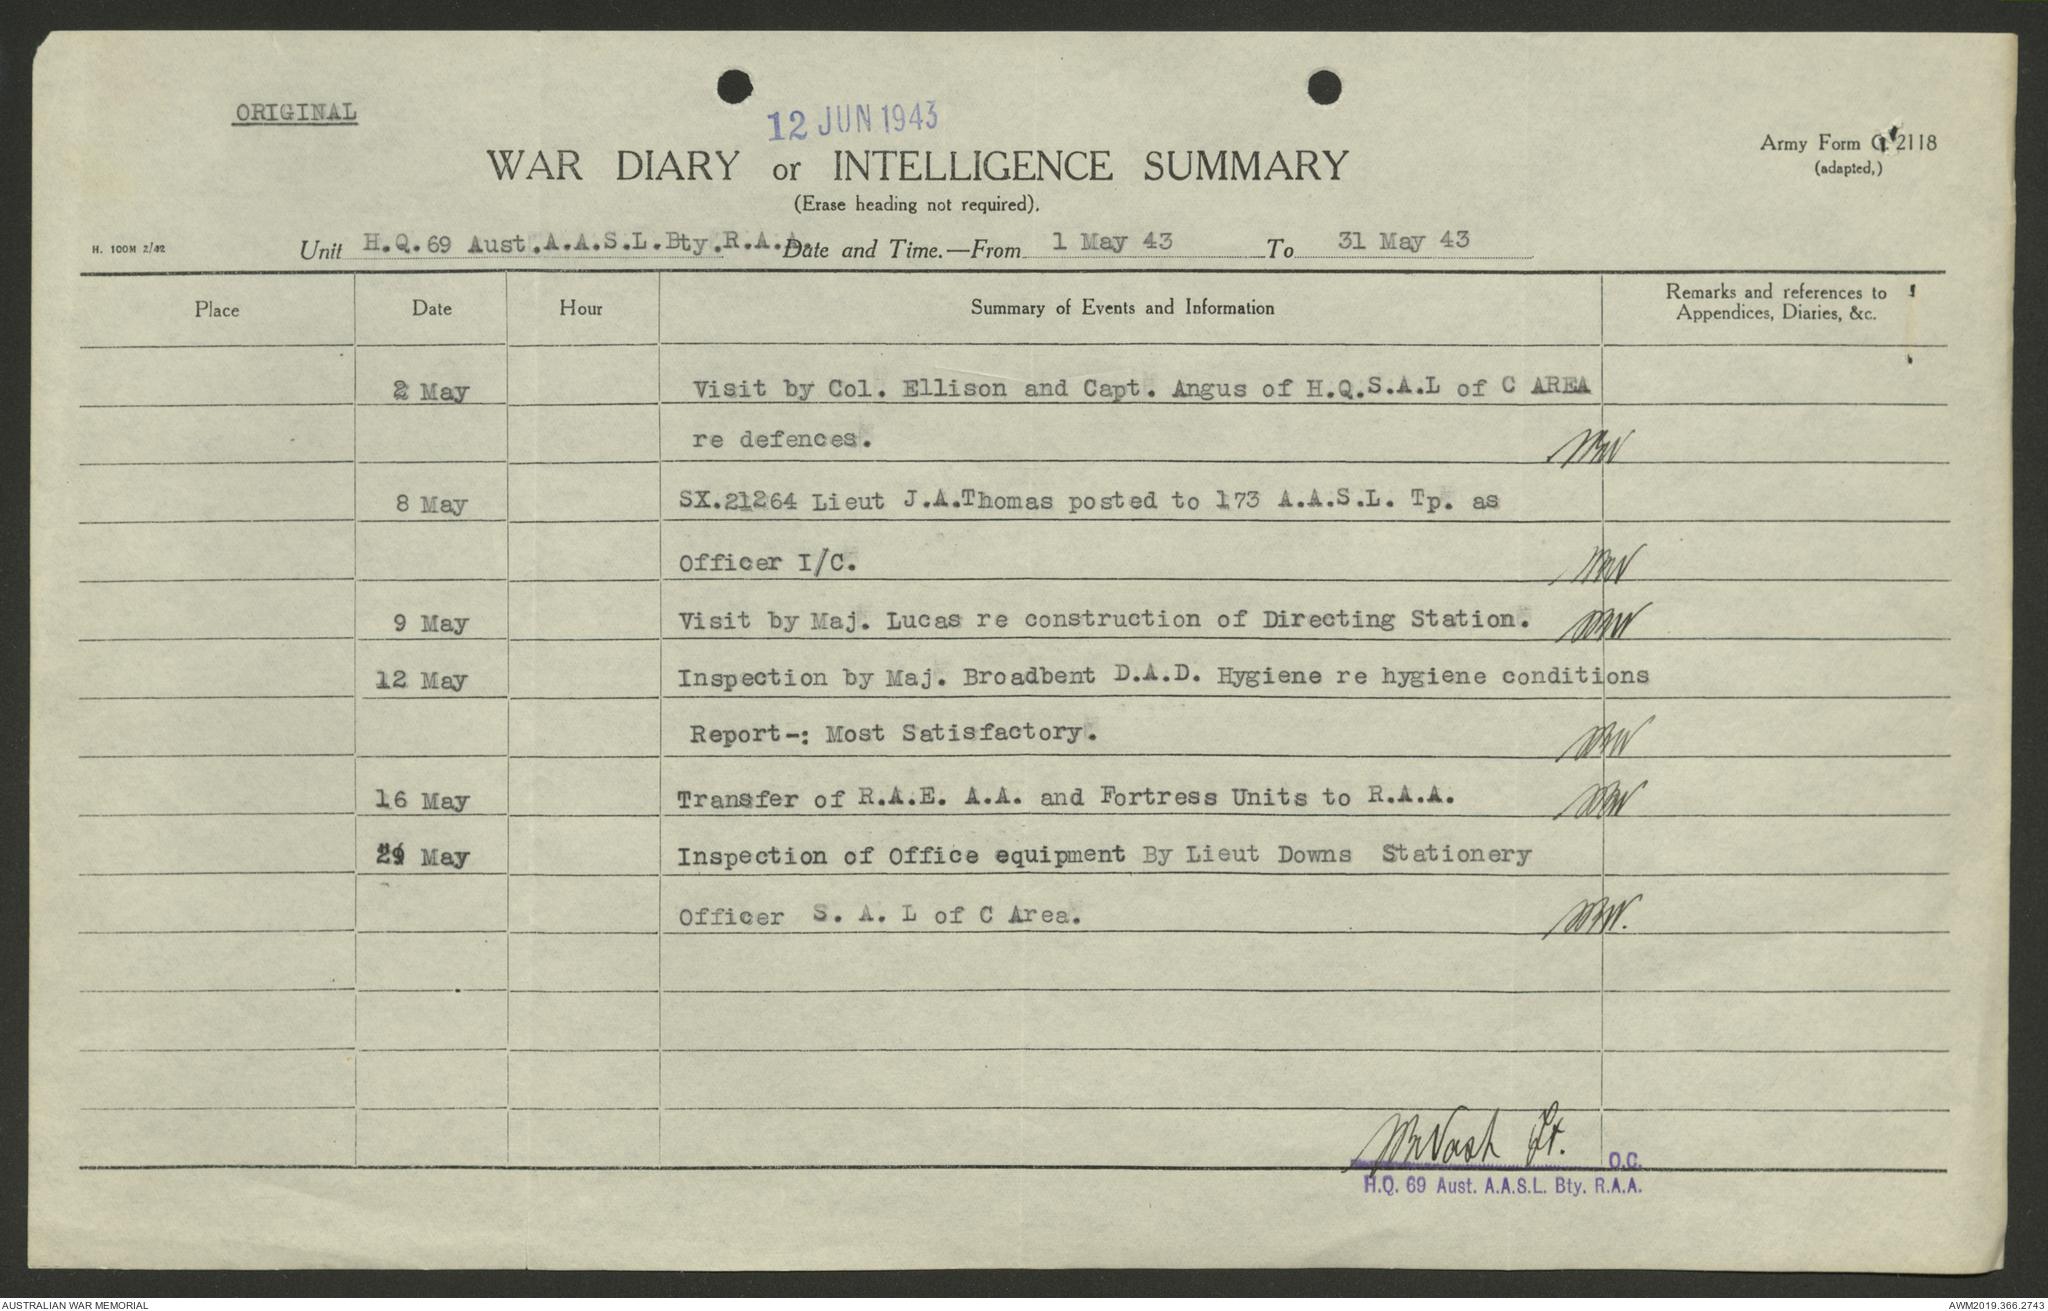 ORIGINAL
12 JUN 1943
WAR DIARY or INTELLIGENCE SUMMARY
Army Form C. 2118
(adapted,)
(Erase heading not required).
H. 100M 2/42
Unit H.Q.69 Aust.A.A.S.L.Bty.R.A.A. Date and Time.—From 1 May 43 To 31 May 43
Place Date Hour Summary of Events and Information Remarks and references to
Appendices, Diaries, &c.
2 May Visit by Col. Ellison and Capt. Angus of H.Q.S.A.L of C AREA
re defences.
8 May SX.21264 Lieut J.A.Thomas posted to 173 A.A.S.L. Tp. as
Officer I/C.
9 May Visit by Maj. Lucas re construction of Directing Station.
12 May Inspection by Maj. Broadbent D.A.D. Hygiene re hygiene conditions
Report-: Most Satisfactory.
16 May Transfer of R.A.E. A.A. and Fortress Units to R.A.A.
May Inspection of Office equipment By Lieut Downs Stationery
Officer S. A. L of C Area.
Lt.
O.C.
H.Q. 69 Aust. A.A.S.L. Bty. R.A.A.
AUSTRALIAN WAR MEMORIAL AWM2019.366.2743